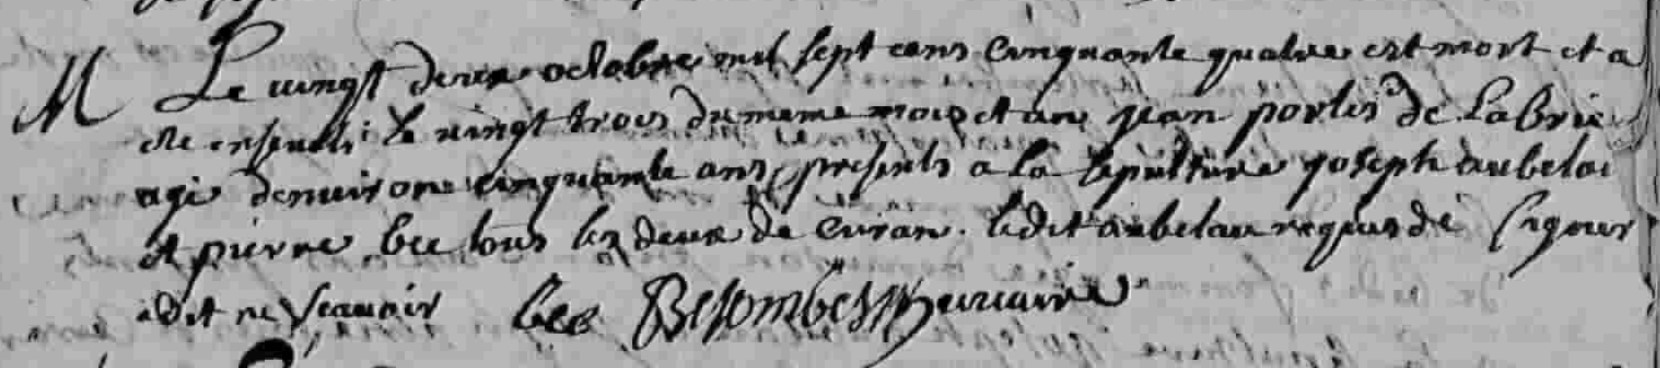 M Le vingt deux octobre mil sept cens cinquante quatre est mort et a
ete enseveli le vingt trois du meme mois et an jean portes de Labrie
agé denviron cinquante ans, presents a la sepulture joseph aubelau
et pierre bee tous les deux de Ciran. ledit aubelau requis de signer
a dit ne scavoir bee Besombes vicaire